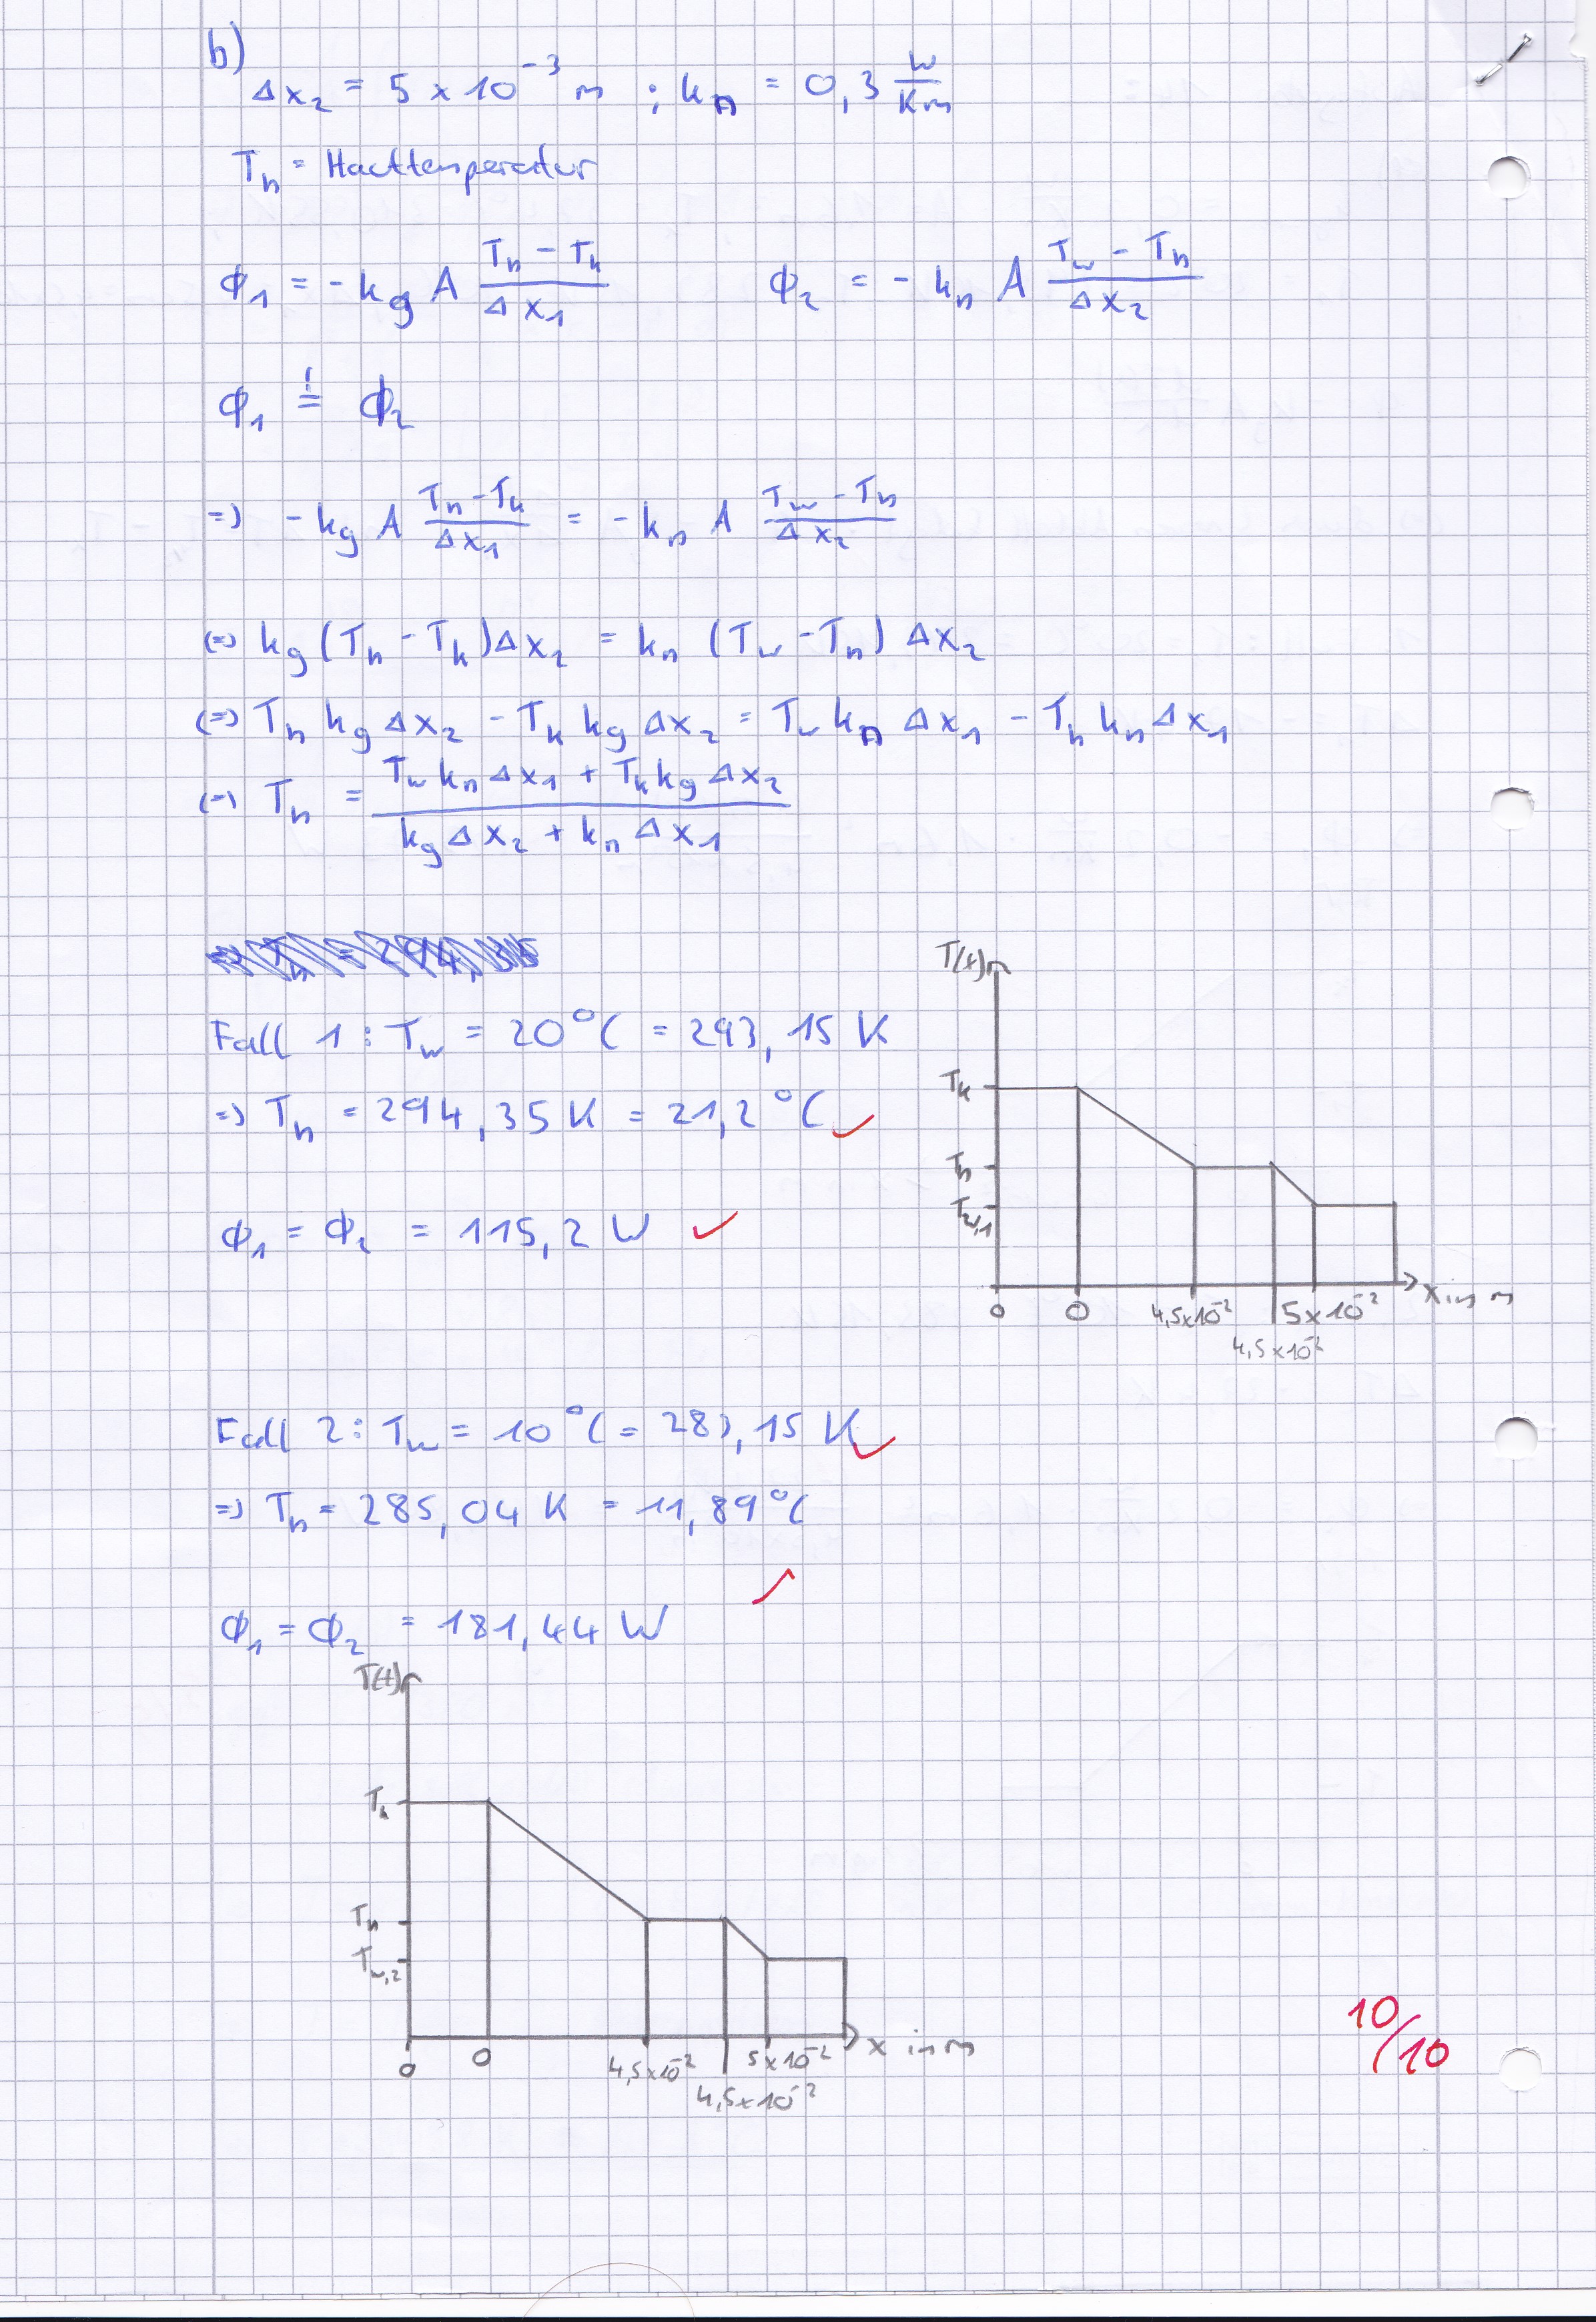 b)
Δx₂ = 5 x 10⁻³ m ; kₙ = 0,3 W/Km
Tₕ = Hauttemperatur
ϕ₁ = -k_g A (Tₕ - Tₖ)/(Δx₁)    ϕ₂ = -kₙ A (T_w - Tₕ)/(Δx₂)
ϕ₁ =! ϕ₂
=> -k_g A (Tₕ - Tₖ)/(Δx₁) = -kₙ A (T_w - Tₕ)/(Δx₂)
<=> k_g (Tₕ - Tₖ) Δx₂ = kₙ (T_w - Tₕ) Δx₂
<=> Tₕ k_g Δx₂ - Tₖ k_g Δx₂ = T_w kₙ Δx₁ - Tₕ kₙ Δx₁
<=> Tₕ = (T_w kₙ Δx₁ + Tₖ k_g Δx₂)/(k_g Δx₂ + kₙ Δx₁)
Fall 1: T_w = 20°C = 293,15 K
=> Tₕ = 294,35 K = 21,2 °C ✓
ϕ₁ = ϕ₂ = 115,2 W ✓
T(x)
Tₖ
Tₕ
T_w,1
0 0 4,5x10⁻² 5x10⁻² x in m
4,5x10⁻²
Fall 2: T_w = 10°C = 283,15 K ✓
=> Tₕ = 285,04 K = 11,89°C
ϕ₁ = ϕ₂ = 181,44 W ✓
T(x)
Tₖ
Tₕ
T_w,2
0 0 4,5x10⁻² 5x10⁻² x in m
4,5x10⁻²
10/10